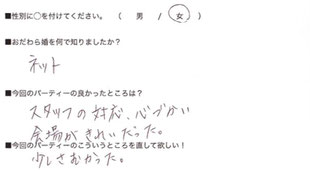 ■性別に○を付けてください。　（　男　/　女　）
■おだわら婚を何で知りましたか？
ネット
■今回のパーティーの良かったところは？
スタッフの対応、心づかい
会場がきれいだった。
■今回のパーティーのこういうところを直して欲しい！
少しさむかった。